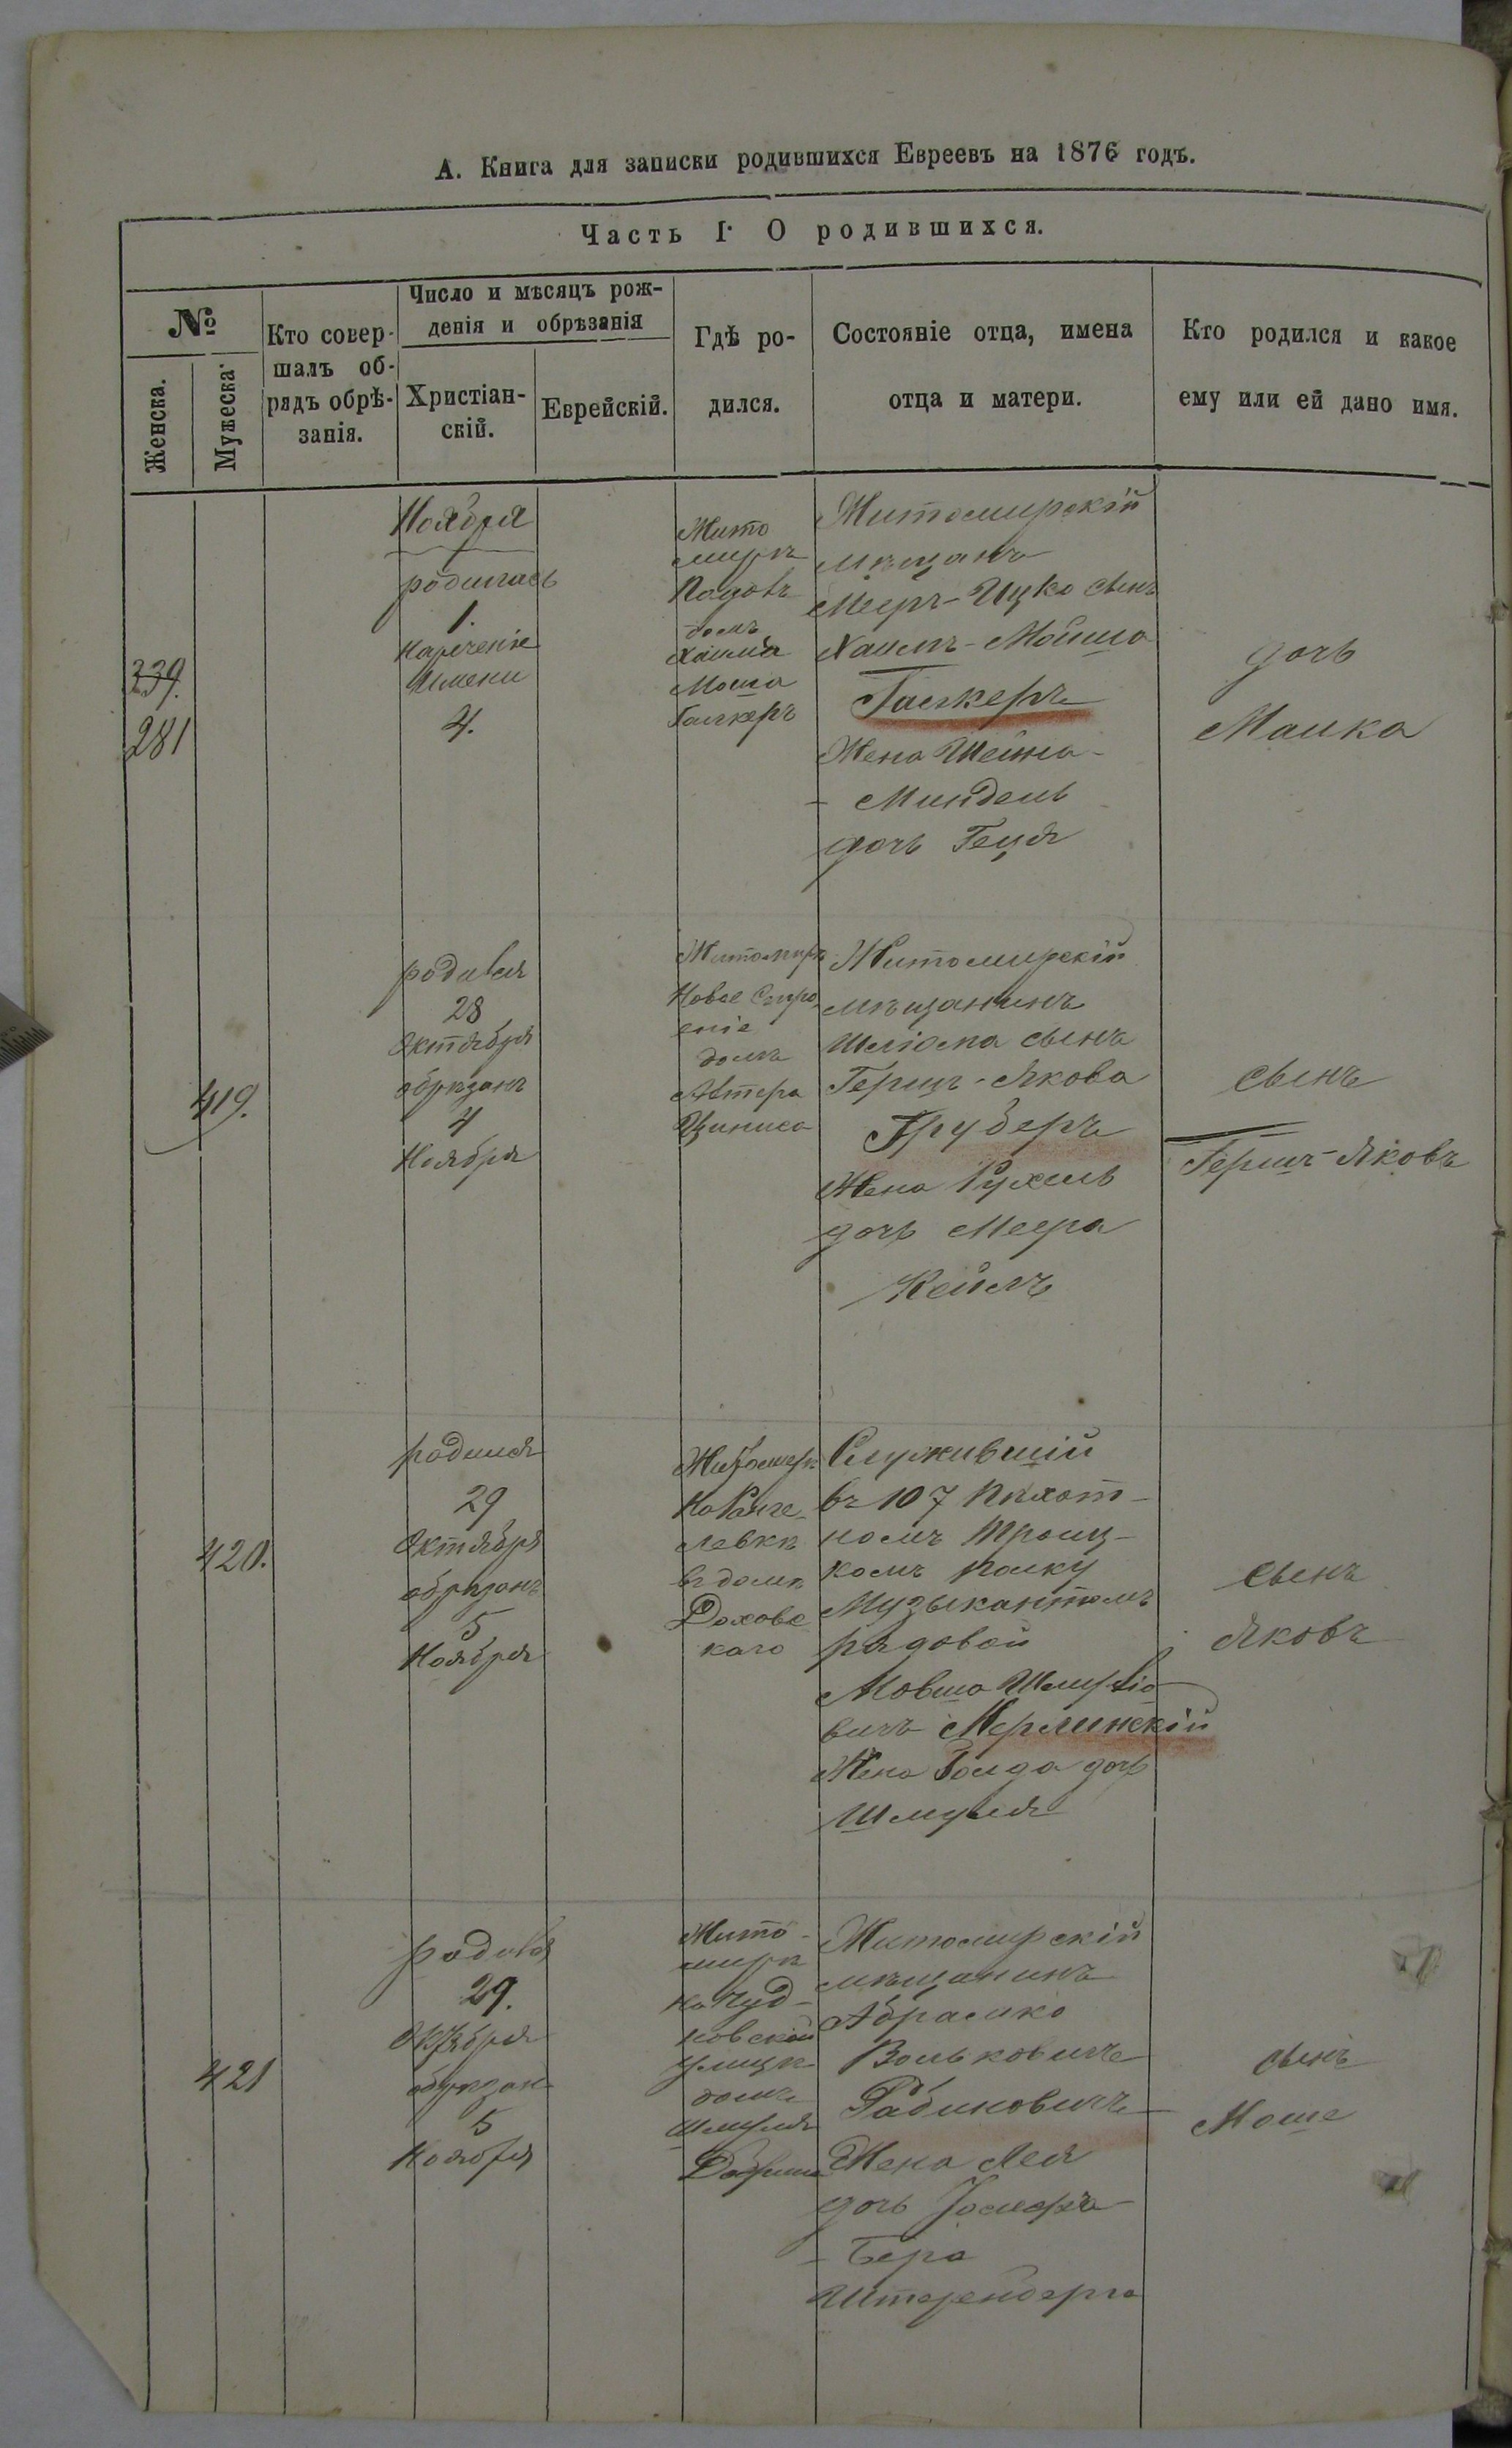 А. Книга для записки родившихся Евреевъ на 1876 годъ.
Часть I. О родившихся.
№
Женска.
Мужеска
Кто совер-
шалъ об-
рядъ обрѣ-
занія.
Число и мѣсяцъ рож-
денія и обрѣзанія
Христіан-
скій.
Еврейскій.
Гдѣ ро-
дился.
Состояніе отца, имена
отца и матери.
Кто родился и какое
ему или ей дано имя.
239.
281
Ноября
родилась
1.
Нареченіе
Имени
4.
Жито
мирѣ
домъ
Хаима
Моша
Житомирскій
мѣщанъ
Мееръ-Ицко сынъ
Хаимъ-Мойша
Жена Шейна-
- Миндель
дочь Геця
дочь
Малка
419.
родился
28
Октября
обрѣзанъ
4
Ноября
Житомирѣ
Новое Стро
еніе
домъ
Житомирскій
мѣщанинъ
Шліома сынъ
Герш-Якова
Груберъ
Жена Рухель
дочь Меера
Кеймъ
сынъ
Гершъ-Яковъ
420.
родился
29
Октября
обрѣзанъ
5
Ноября
Житомирѣ
левкѣ
въ домѣ
каго
Служившій
въ 107 Пѣхот-
номъ Троиц-
комъ полку
Музыкантомъ
рядовой
Мовша
вичъ Мерлинскій
Жена Голда дочь
Шмуля
сынъ
Яковъ
421
родился
29.
Октября
обрѣзан
5
Ноября
Жито-
мирѣ
на Чуд-
новской
улицѣ
домъ
Шмуля
Житомирскій
мѣщанинъ
Абрамко
Вольковичъ
Рабиновичъ
Жена Лея
дочь Іосифа-
- Бера
Штеренберга
сынъ
Моше